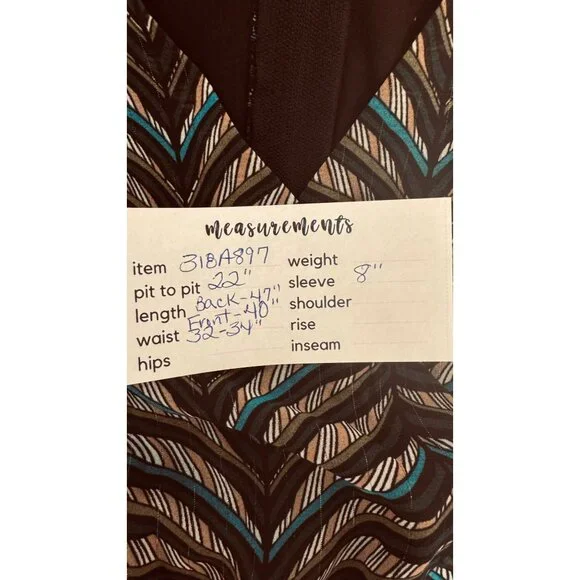 measurements
item 31BA897
pit to pit 22"
length Back-47"
Front-40"
waist 32-34"
hips
weight
sleeve 8"
shoulder
rise
inseam